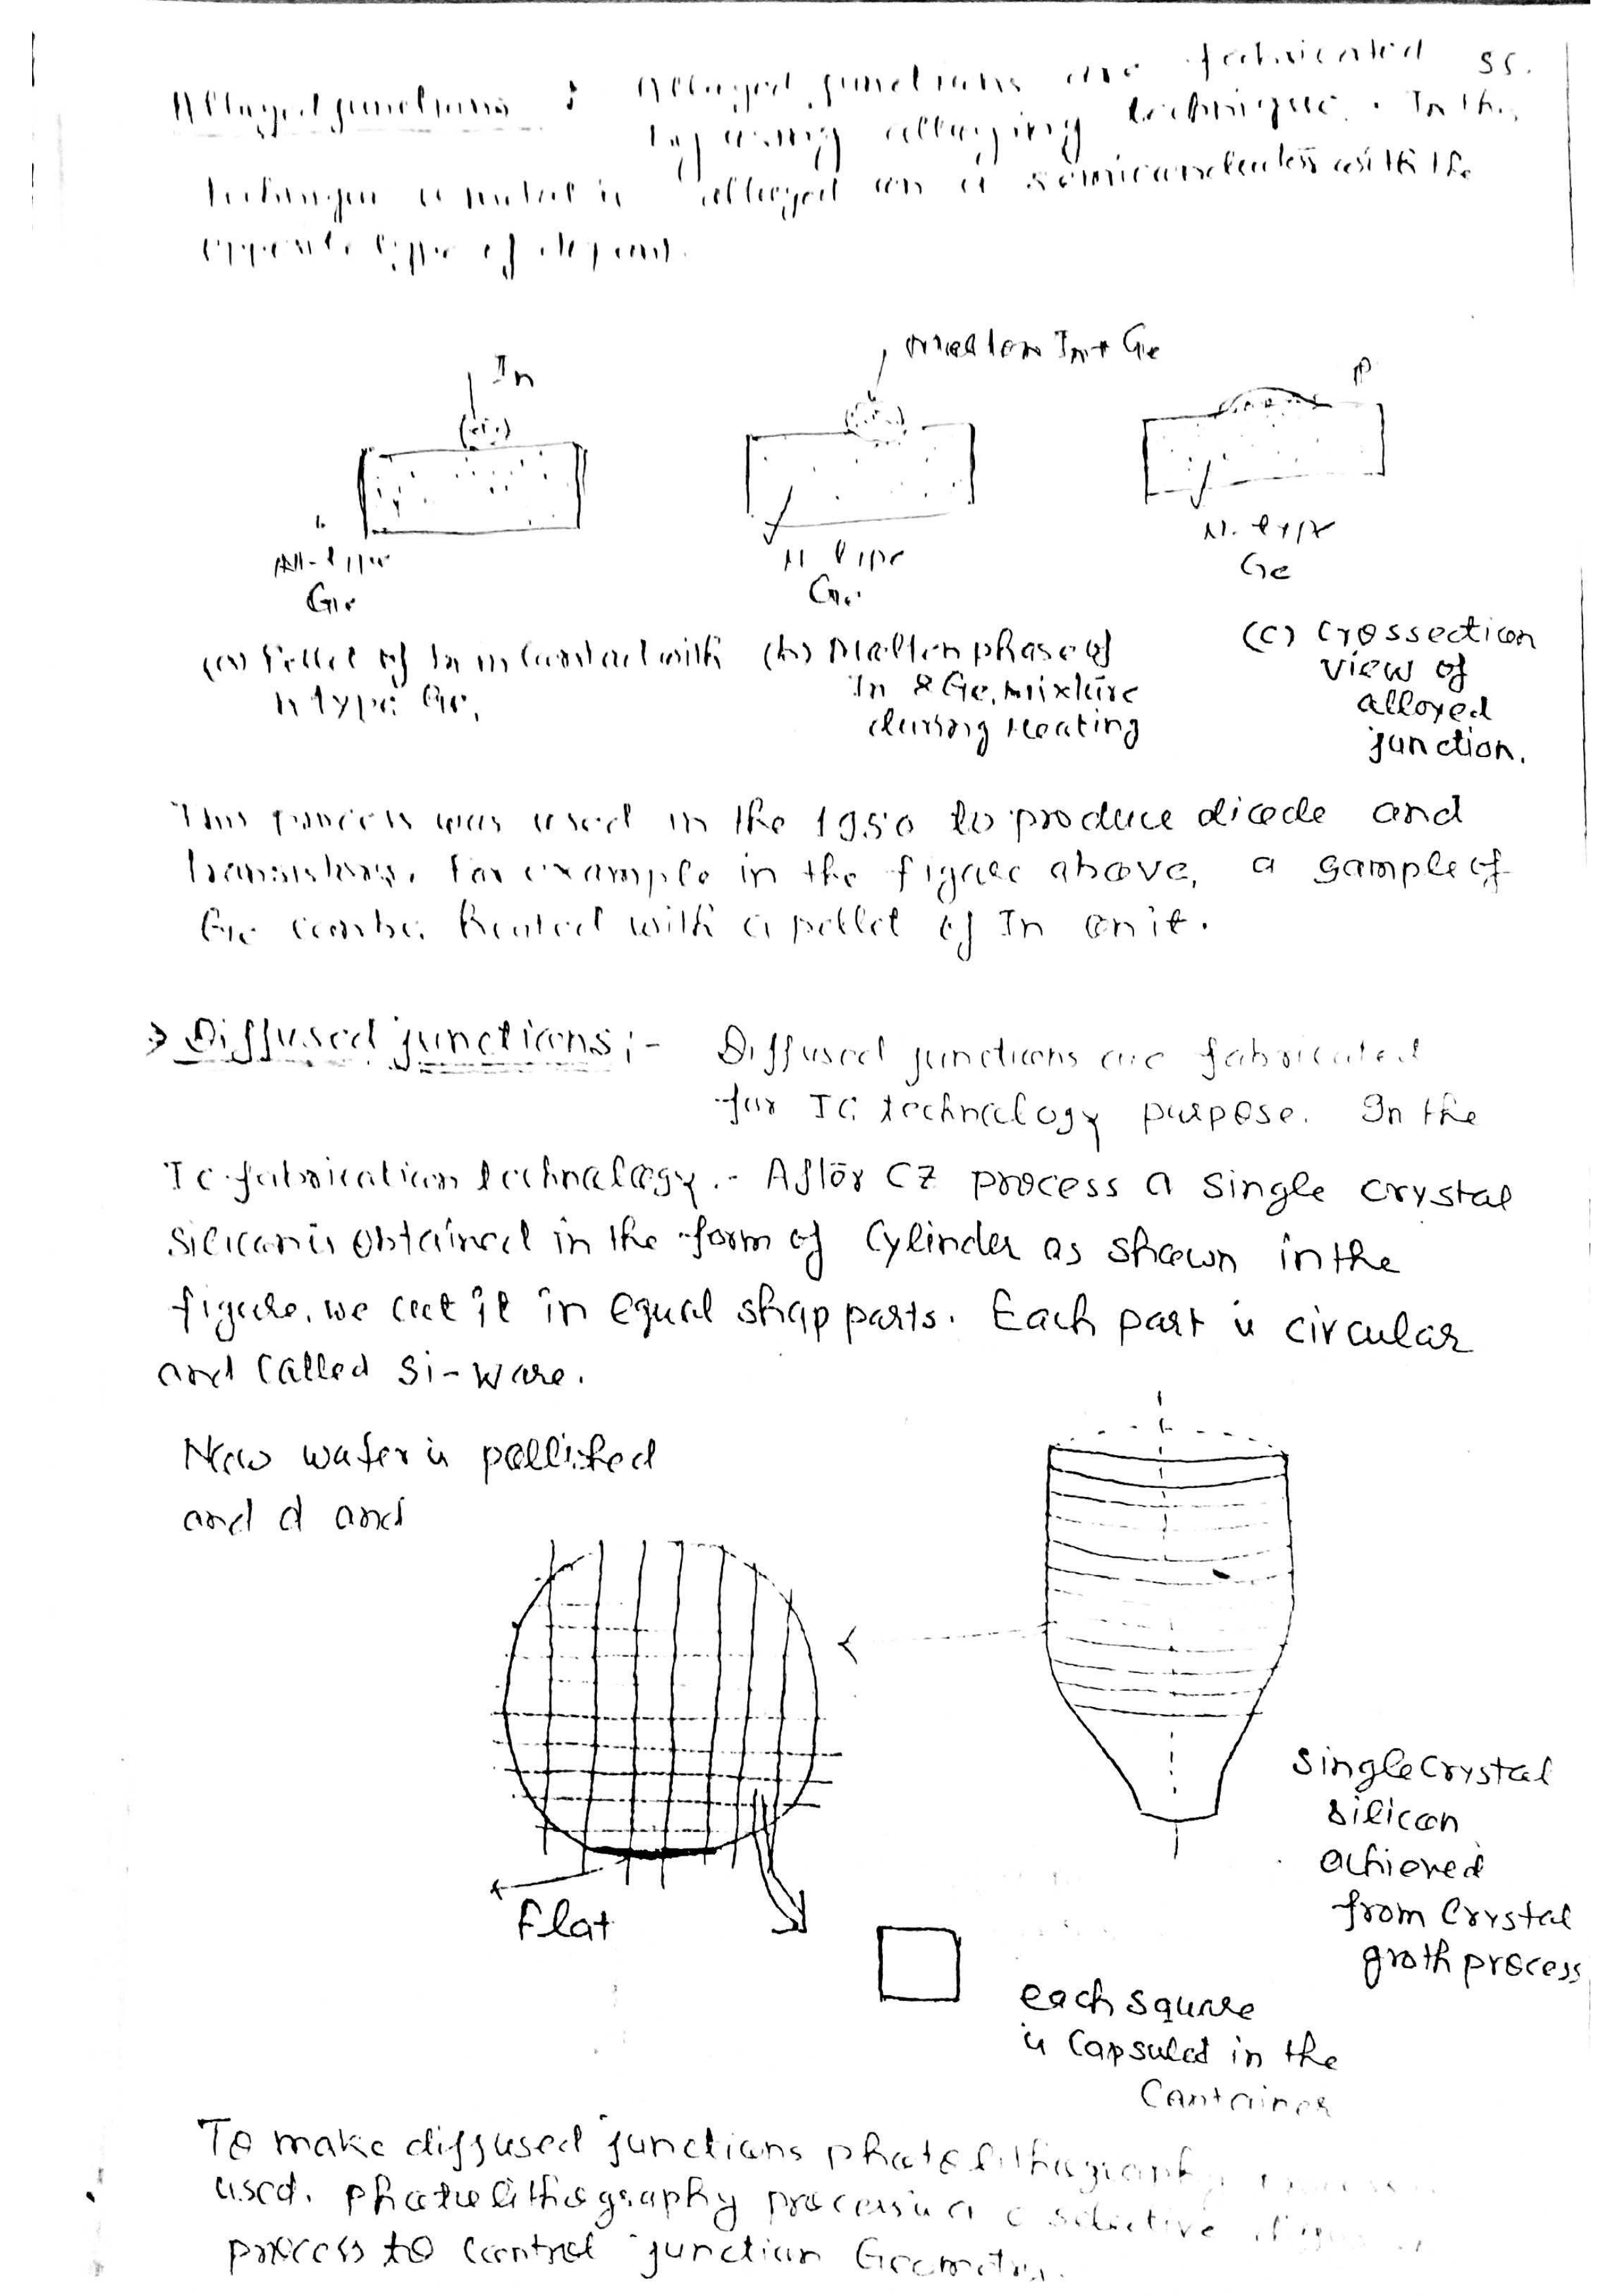 Alloyed junctions : Alloyed junctions are fabricated 55.
by using alloying technique. In the
technique a metal is alloyed on a semiconductor with the
opposite type of dopant.
In
molten In + Ge
P
N-type
Ge
N type
Ge
N-type
Ge
(a) Pellet of In in contact with
n type Ge.
(b) Molten phase of
In & Ge, mixture
during Heating
(c) crossection
view of
alloyed
junction.
This process was used in the 1950 to produce diode and
transistors. For example in the figure above, a sample of
Ge can be heated with a pellet of In on it.
→ Diffused junctions :- Diffused junctions are fabricated
for IC technology purpose. In the
IC fabrication technology.- After CZ process a single crystal
silicon is obtained in the form of cylinder as shown in the
figure. we cut it in equal shap parts. Each part is circular
and called Si-ware.
Now wafer is pollished
and d and
Flat
single crystal
silicon
achieved
from crystal
groth process
each square
is capsuled in the
Container
To make diffused junctions photolithography
used. photolithography process is a selective
process to control junction Geometry.